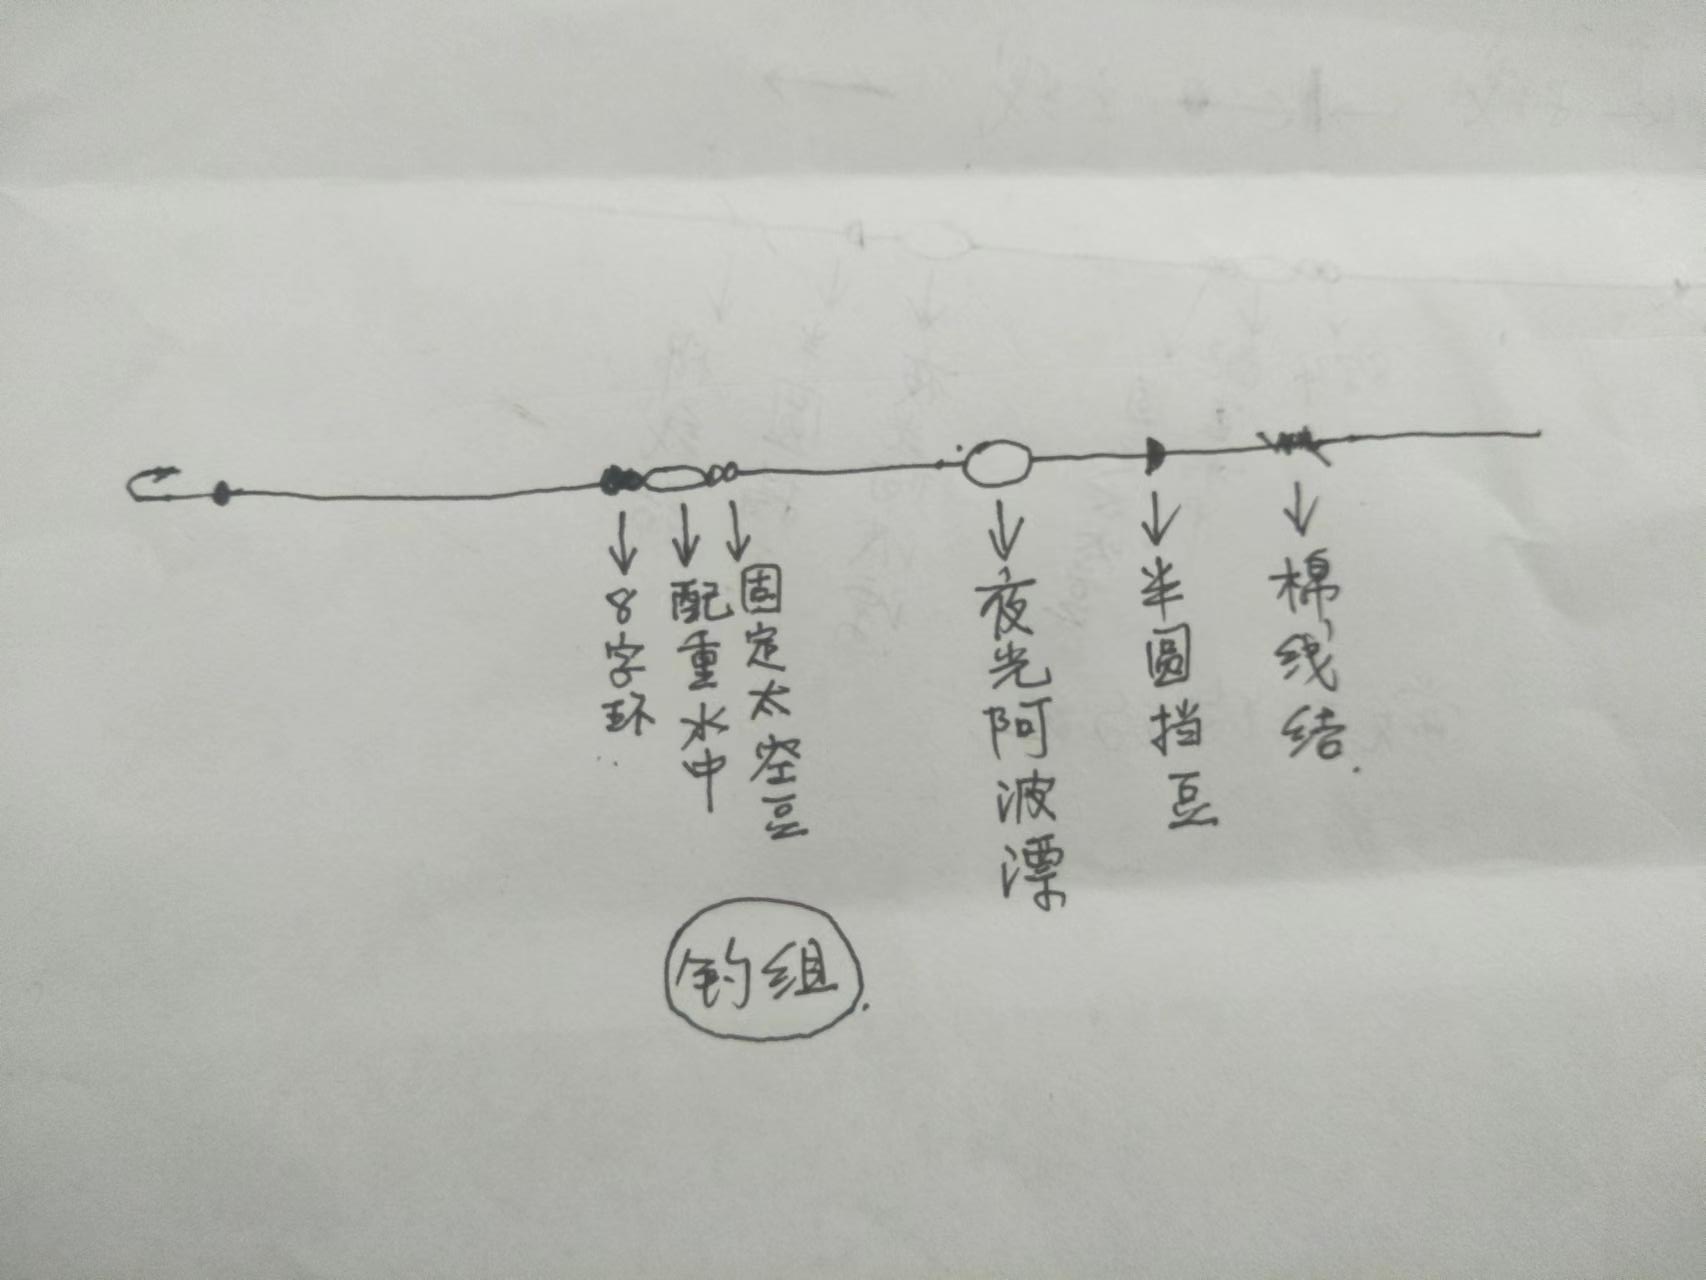 8字环
配重水中
固定太空豆
夜光阿波漂
半圆挡豆
棉线结
钓组